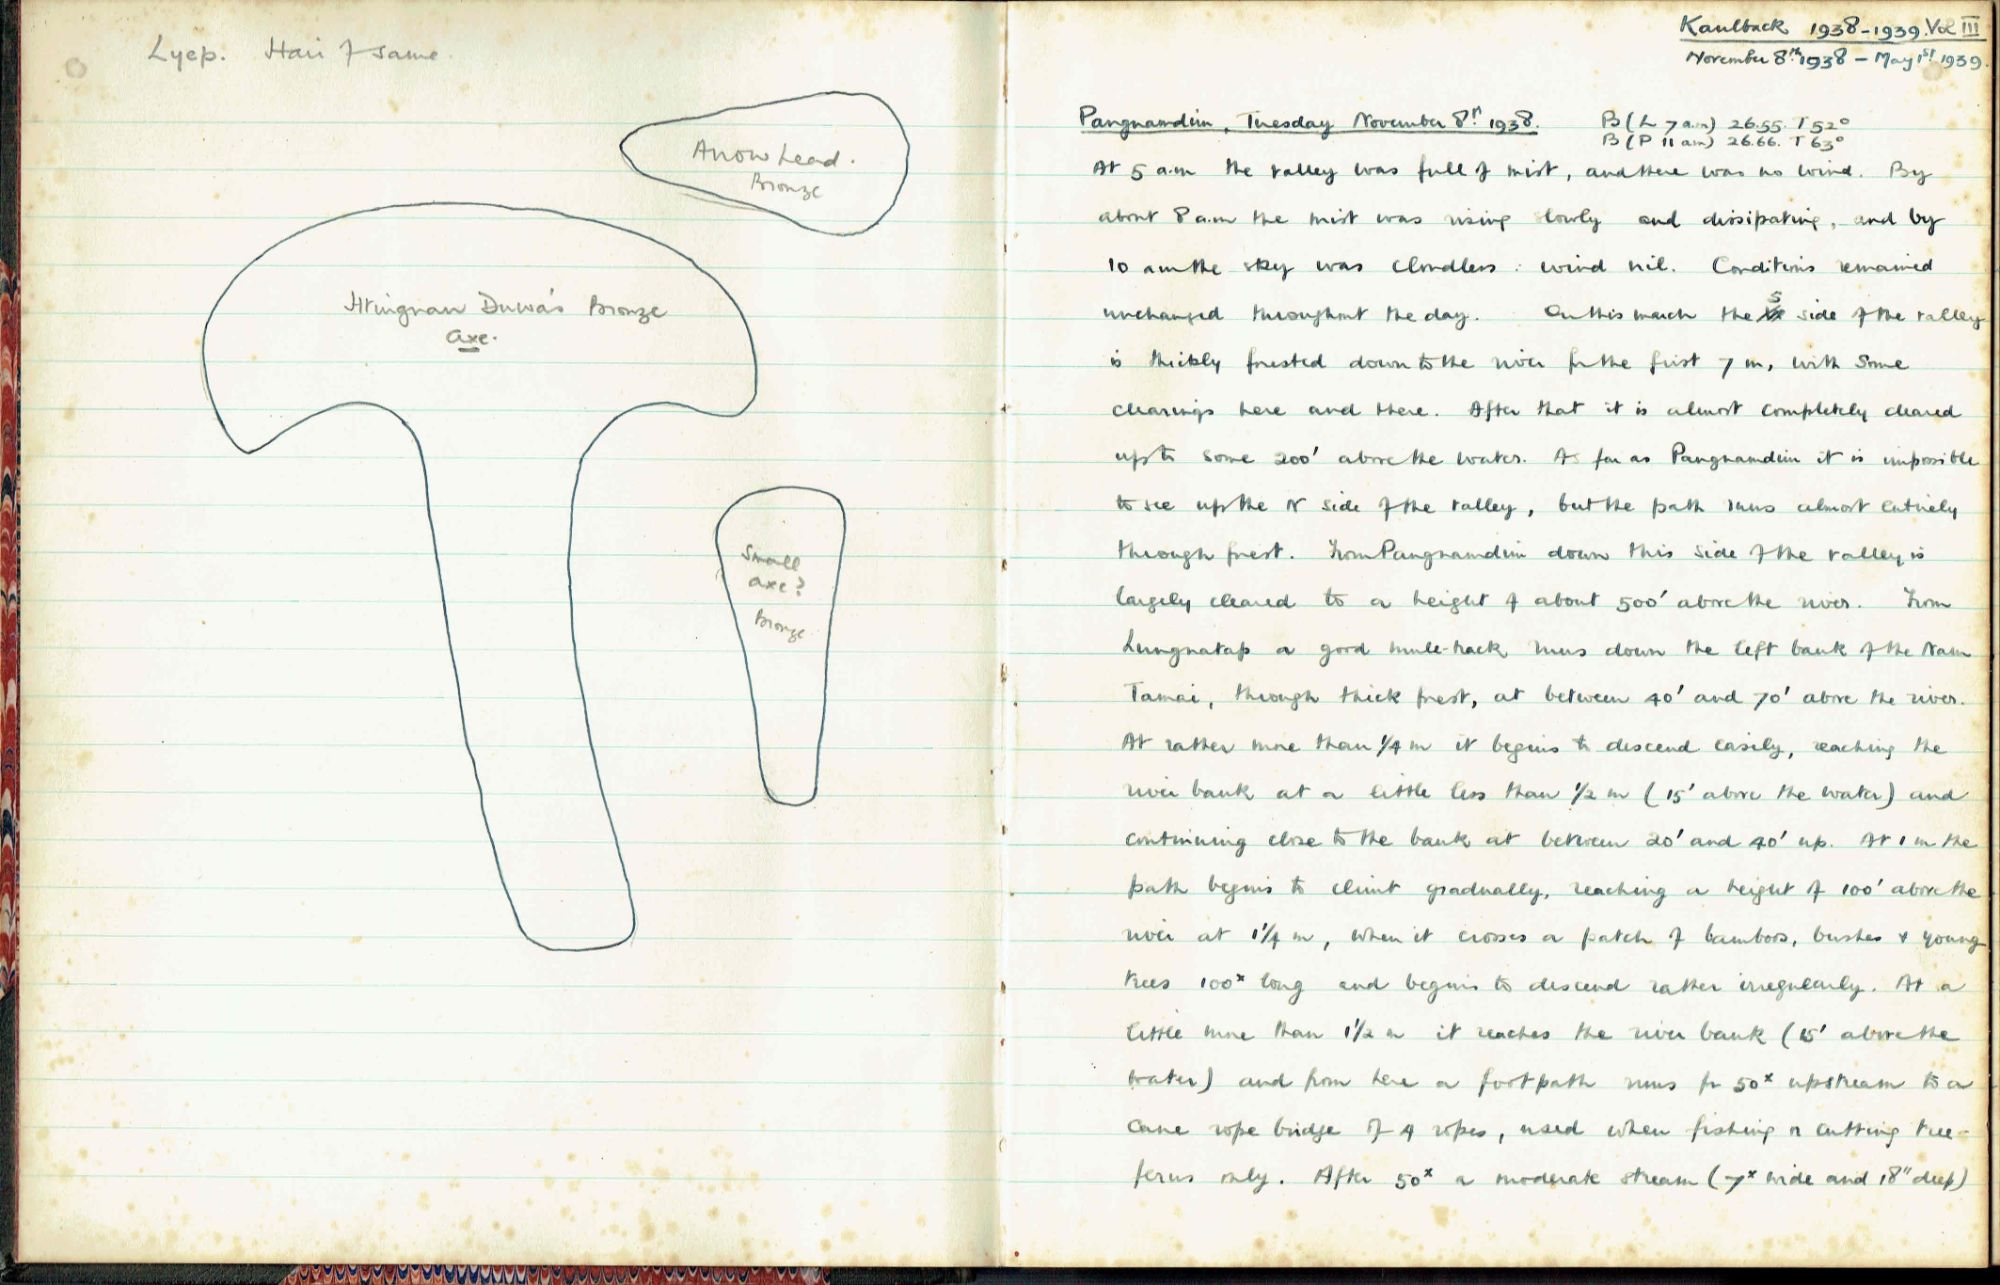 Lyep. Hair of same.
Arrow head.
Bronze
Htingnan Duwa's Bronze
axe.
Small
axe?
Bronze.
Kaulback 1938-1939. Vol III
November 8th 1938 - May 1st 1939.
Pangnamdim, Tuesday November 8th 1938.
B (L 7 am) 26.55. T 52°
B (P 11 am) 26.66. T 63°
At 5 a.m the valley was full of mist, and there was no wind. By
about 8 a.m the mist was rising slowly and dissipating, and by
10 am the sky was cloudless: wind nil. Conditions remained
unchanged throughout the day. On this march the S side of the valley
is thickly forested down to the river for the first 7 m, with some
clearings here and there. After that it is almost completely cleared
up to some 200' above the water. As far as Pangnamdim it is impossible
to see up the N side of the valley, but the path runs almost entirely
through forest. From Pangnamdim down this side of the valley is
largely cleared to a height of about 500' above the river. From
Lungnatap a good mule-track runs down the left bank of the Nam
Tamai, through thick forest, at between 40' and 70' above the river.
At rather more than 1/4 m it begins to descend easily, reaching the
river bank at a little less than 1/2 m (15' above the water) and
continuing close to the bank at between 20' and 40' up. At 1 m the
path begins to climb gradually, reaching a height of 100' above the
river at 1 1/4 m, when it crosses a patch of bamboos, bushes & young
trees 100x long and begins to descend rather irregularly. At a
little more than 1 1/2 m it reaches the river bank (15' above the
water) and from here a footpath runs for 50x upstream to a
cane rope bridge of 4 ropes, used when fishing or cutting tree-
ferns only. After 50x a moderate stream (7x wide and 18" deep)